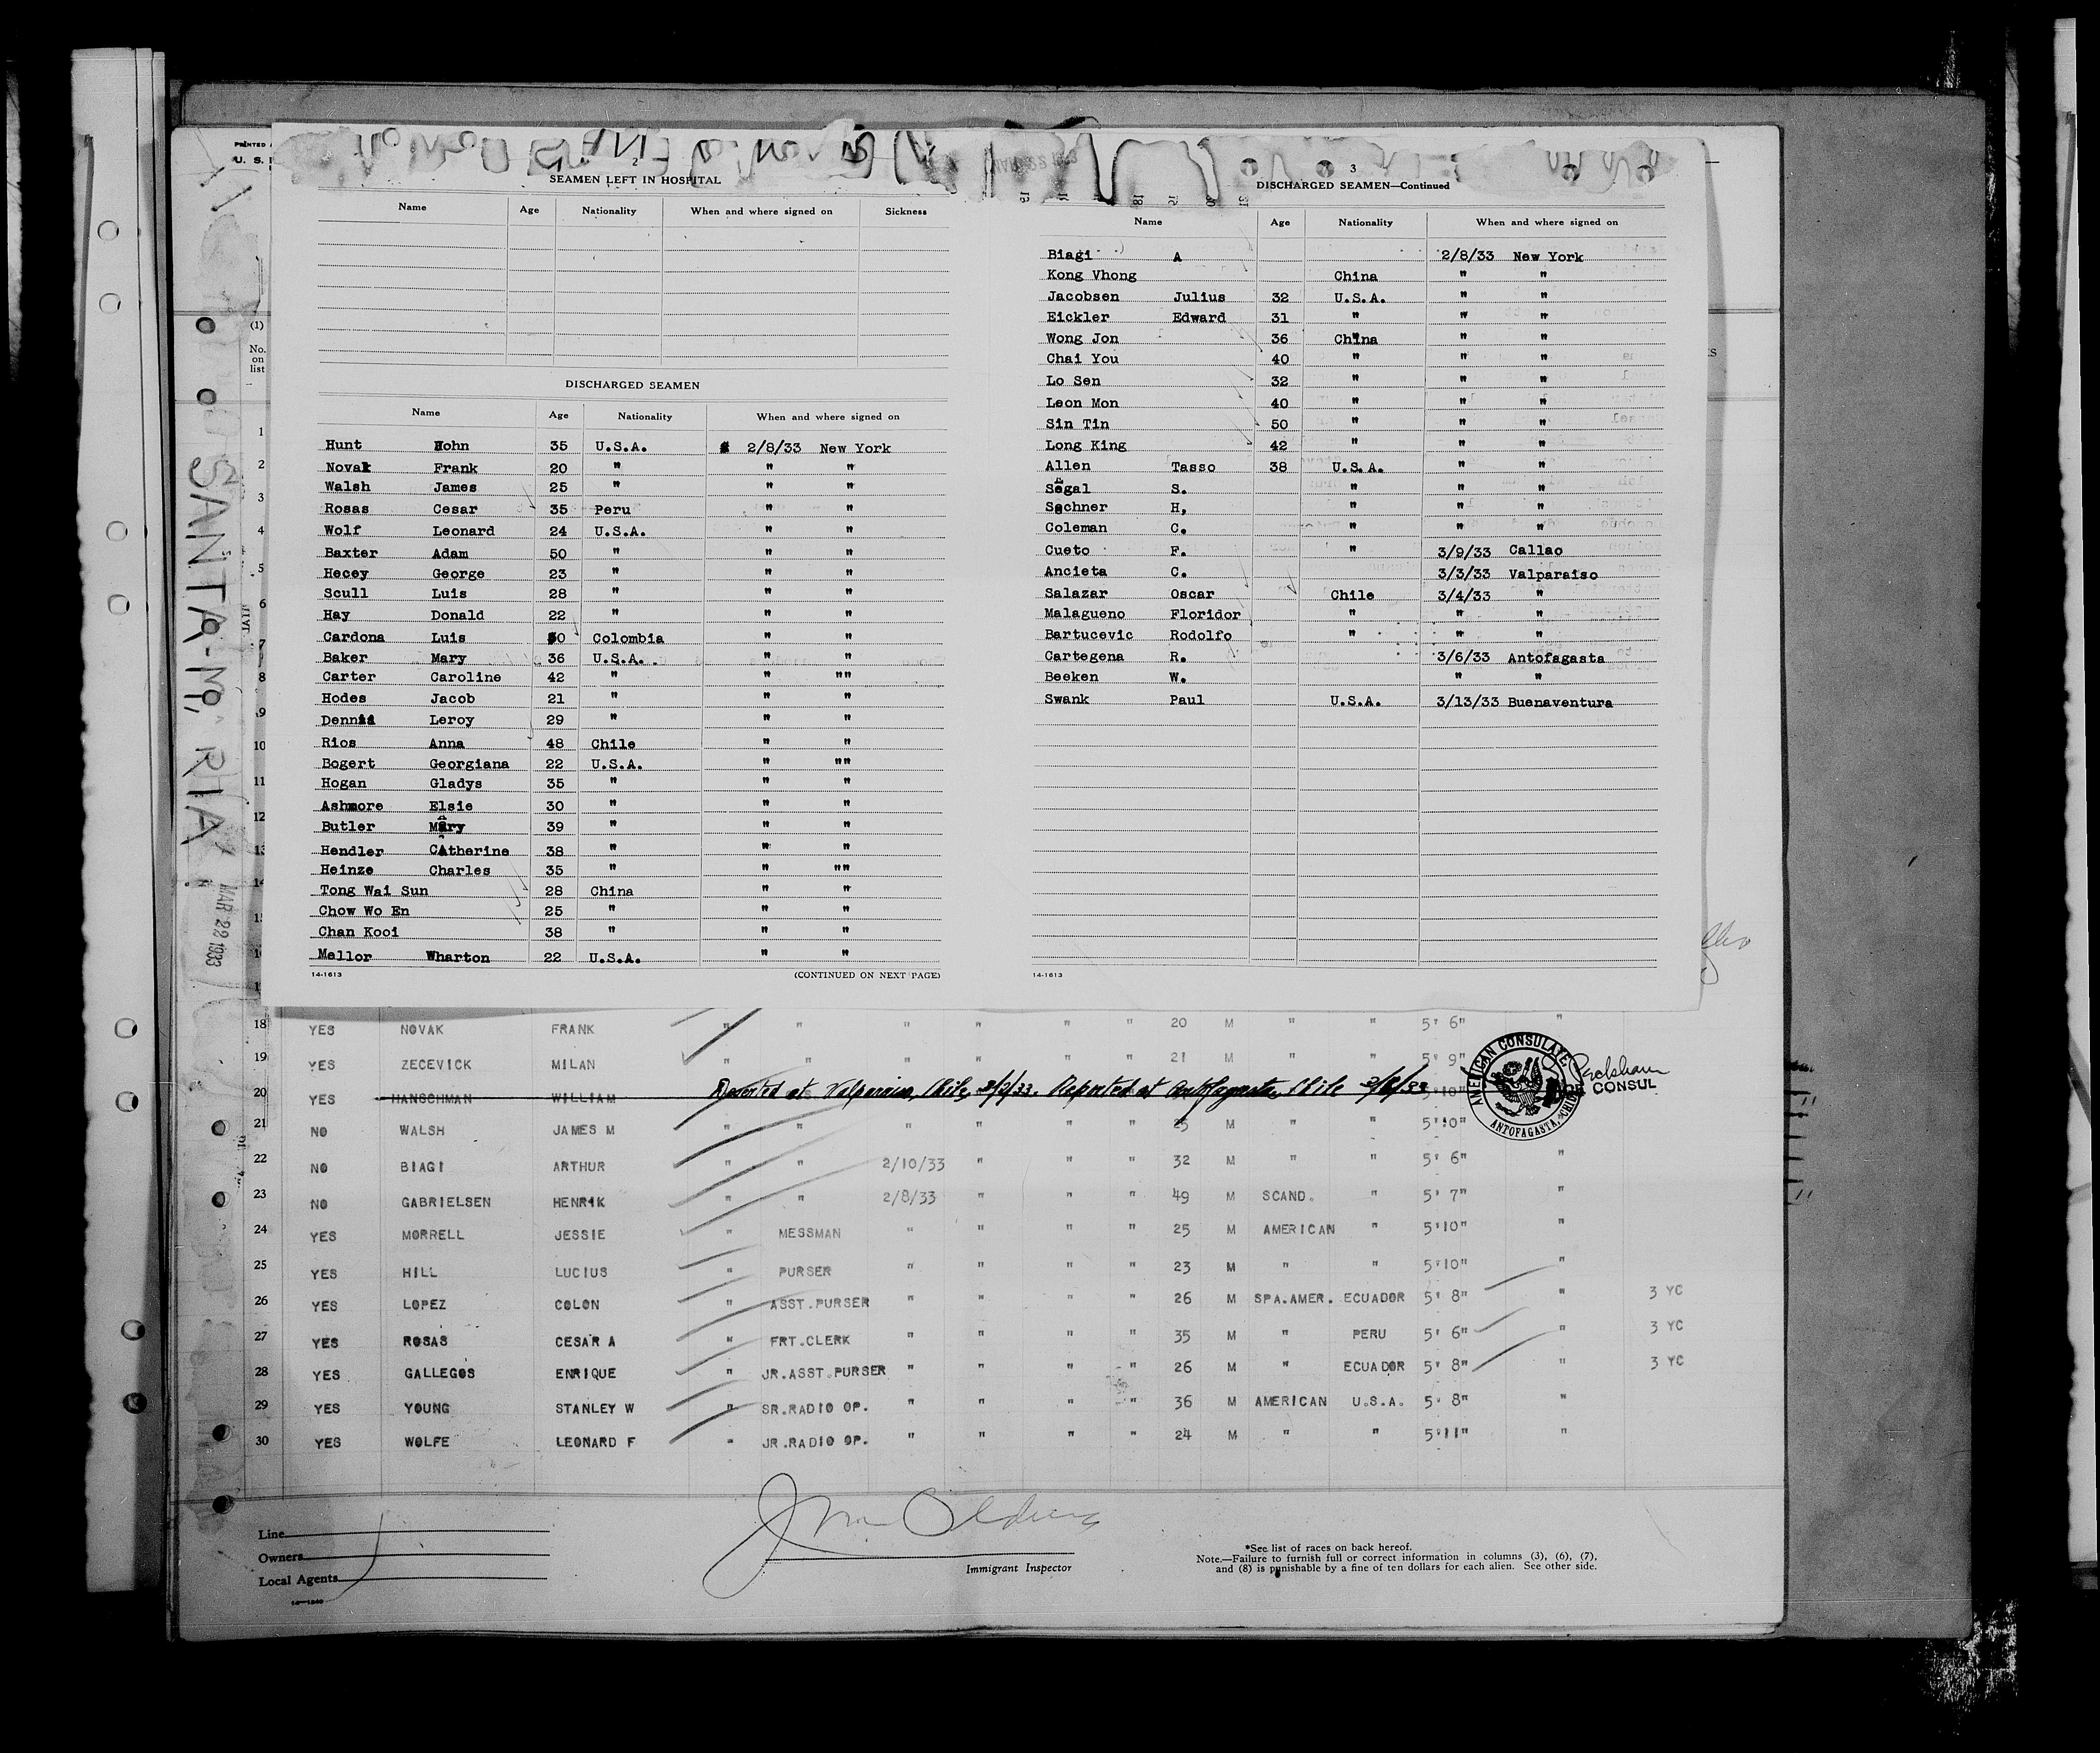 PRINTED
U. S.
2
SEAMEN LEFT IN HOSPITAL
Name Age Nationality When and where signed on Sickness
DISCHARGED SEAMEN
Name Age Nationality When and where signed on
Hunt Hohn 35 U.S.A. 2/8/33 New York
Novak Frank 20 " " "
Walsh James 25 " " "
Rosas Cesar 35 Peru " "
Wolf Leonard 24 U.S.A. " "
Baxter Adam 50 " " "
Hecey George 23 " " "
Scull Luis 28 " " "
Hay Donald 22 " " "
Cardona Luis 0 Colombia " "
Baker Mary 36 U.S.A. " "
Carter Caroline 42 " " ""
Hodes Jacob 21 " " "
Dennis Leroy 29 " " "
Rios Anna 48 Chile " "
Bogert Georgiana 22 U.S.A. " ""
Hogan Gladys 35 " " "
Ashmore Elsie 30 " " "
Butler Mary 39 " " "
Hendler CAtherine 38 " " "
Heinze Charles 35 " " ""
Tong Wai Sun 28 China " "
Chow Wo En 25 " " "
Chan Kooi 38 " " "
Mallor Wharton 22 U.S.A. " "
14-1613 (CONTINUED ON NEXT PAGE)
3
DISCHARGED SEAMEN—Continued
Name Age Nationality When and where signed on
Biagi A 2/8/33 New York
Kong Vhong China " "
Jacobsen Julius 32 U.S.A. " "
Eickler Edward 31 " " "
Wong Jon 36 China " "
Chai You 40 " " "
Lo Sen 32 " " "
Leon Mon 40 " " "
Sin Tin 50 " " "
Long King 42 " " "
Allen Tasso 38 U.S.A. " "
Segal S. " " "
Sechner H, " " "
Coleman C. " " "
Cueto F. " 3/9/33 Callao
Ancieta C. 3/3/33 Valparaiso
Salazar Oscar Chile 3/4/33 "
Malagueno Floridor " " "
Bartucevic Rodolfo " " "
Cartegena R. 3/6/33 Antofagasta
Beeken W. " "
Swank Paul U.S.A. 3/13/33 Buenaventura
14-1613
(1)
No.
on
list
1
2
3
4
5
6
7
8
9
10
11
12
13
14
SANTA MARIA
MAR 22 1933
18 YES NOVAK FRANK " " " " " " 20 M " " 5' 6" "
19 YES ZECEVICK MILAN " " " " " " 21 M " " 5' 9"
20 YES HANSCHMAN WILLIAM Deserted at Valparaiso, Chile, 3/2/33. Reported at Antofagasta, Chile 3/6/33 5'10"
AMERICAN CONSULATE
ANTOFAGASTA, CHILE
CONSUL
21 NO WALSH JAMES M " " " " " " 25 M " " 5'10"
22 NO BIAGI ARTHUR " " 2/10/33 " " " 32 M " " 5' 6" "
23 NO GABRIELSEN HENRIK " " 2/8/33 " " " 49 M SCAND. " 5' 7" "
24 YES MORRELL JESSIE " MESSMAN " " " " 25 M AMERICAN " 5'10" "
25 YES HILL LUCIUS " PURSER " " " " 23 M " " 5'10" "
26 YES LOPEZ COLON " ASST.PURSER " " " " 26 M SPA.AMER. ECUADOR 5' 8" " 3 YC
27 YES ROSAS CESAR A " FRT.CLERK " " " " 35 M " PERU 5' 6" " 3 YC
28 YES GALLEGOS ENRIQUE " JR.ASST.PURSER " " " " 26 M " ECUADOR 5' 8" " 3 YC
29 YES YOUNG STANLEY W " SR.RADIO OP. " " " " 36 M AMERICAN U.S.A. 5' 8" "
30 YES WOLFE LEONARD F " JR.RADIO OP. " " " " 24 M " " 5'11" "
Line
Owners
Local Agents
Immigrant Inspector
*See list of races on back hereof.
Note.—Failure to furnish full or correct information in columns (3), (6), (7),
and (8) is punishable by a fine of ten dollars for each alien. See other side.